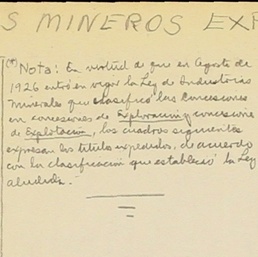 S MINEROS EXP
(*) Nota: En virtud de que en Agosto de
1926 entró en vigor la Ley de Industrias
Minerales que clasificó las Concesiones
en concesiones de Exploración y concesiones
de Explotación, los cuadros siguientes
expresan los títulos expedidos, de acuerdo
con la clasificación que estableció la Ley
aludida.